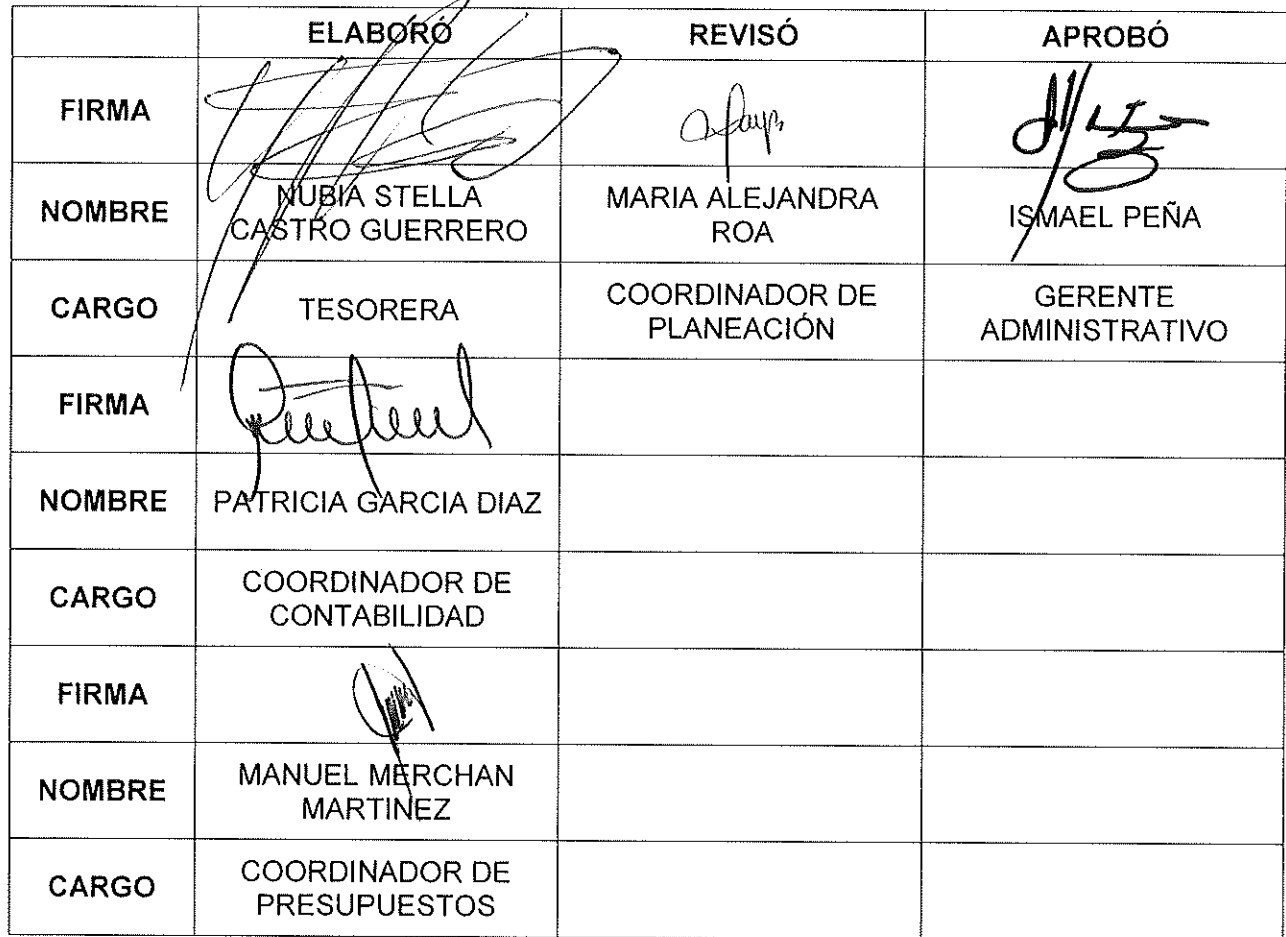 ELABORÓ REVISÓ APROBÓ
FIRMA
NOMBRE NUBIA STELLA CASTRO GUERRERO MARIA ALEJANDRA ROA ISMAEL PEÑA
CARGO TESORERA COORDINADOR DE PLANEACIÓN GERENTE ADMINISTRATIVO
FIRMA
NOMBRE PATRICIA GARCIA DIAZ
CARGO COORDINADOR DE CONTABILIDAD
FIRMA
NOMBRE MANUEL MERCHAN MARTINEZ
CARGO COORDINADOR DE PRESUPUESTOS